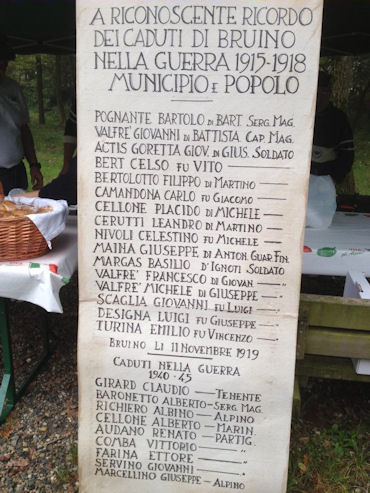 A RICONOSCENTE RICORDO
DEI CADUTI DI BRUINO
NELLA GUERRA 1915-1918
MUNICIPIO E POPOLO
POGNANTE BARTOLO DI BART. SERG. MAG.
VALFRÈ GIOVANNI DI BATTISTA CAP. MAG.
ACTIS GORETTA GIOV. DI GIUS. SOLDATO
BERT CELSO FU VITO —
BERTOLOTTO FILIPPO DI MARTINO —
CAMANDONA CARLO FU GIACOMO —
CELLONE PLACIDO DI MICHELE —
CERUTTI LEANDRO DI MARTINO —
NIVOLI CELESTINO FU MICHELE —
MAINA GIUSEPPE DI ANTON. GUAR. FIN.
MARGAS BASILIO D'IGNOTI SOLDATO
VALFRE' FRANCESCO DI GIOVAN. — "
VALFRE' MICHELE DI GIUSEPPE — "
SCAGLIA GIOVANNI FU LUIGI "
DESIGNA LUIGI FU GIUSEPPE — "
TURINA EMILIO FU VINCENZO — "
BRUINO LI 11 NOVEMBRE 1919
CADUTI NELLA GUERRA
1940-45
GIRARD CLAUDIO — TENENTE
BARONETTO ALBERTO — SERG. MAG.
RICHIERO ALBINO — ALPINO
CELLONE ALBERTO — MARIN.
AUDANO RENATO — PARTIG.
COMBA VITTORIO — "
FARINA ETTORE — "
SERVINO GIOVANNI — "
MARCELLINO GIUSEPPE — ALPINO